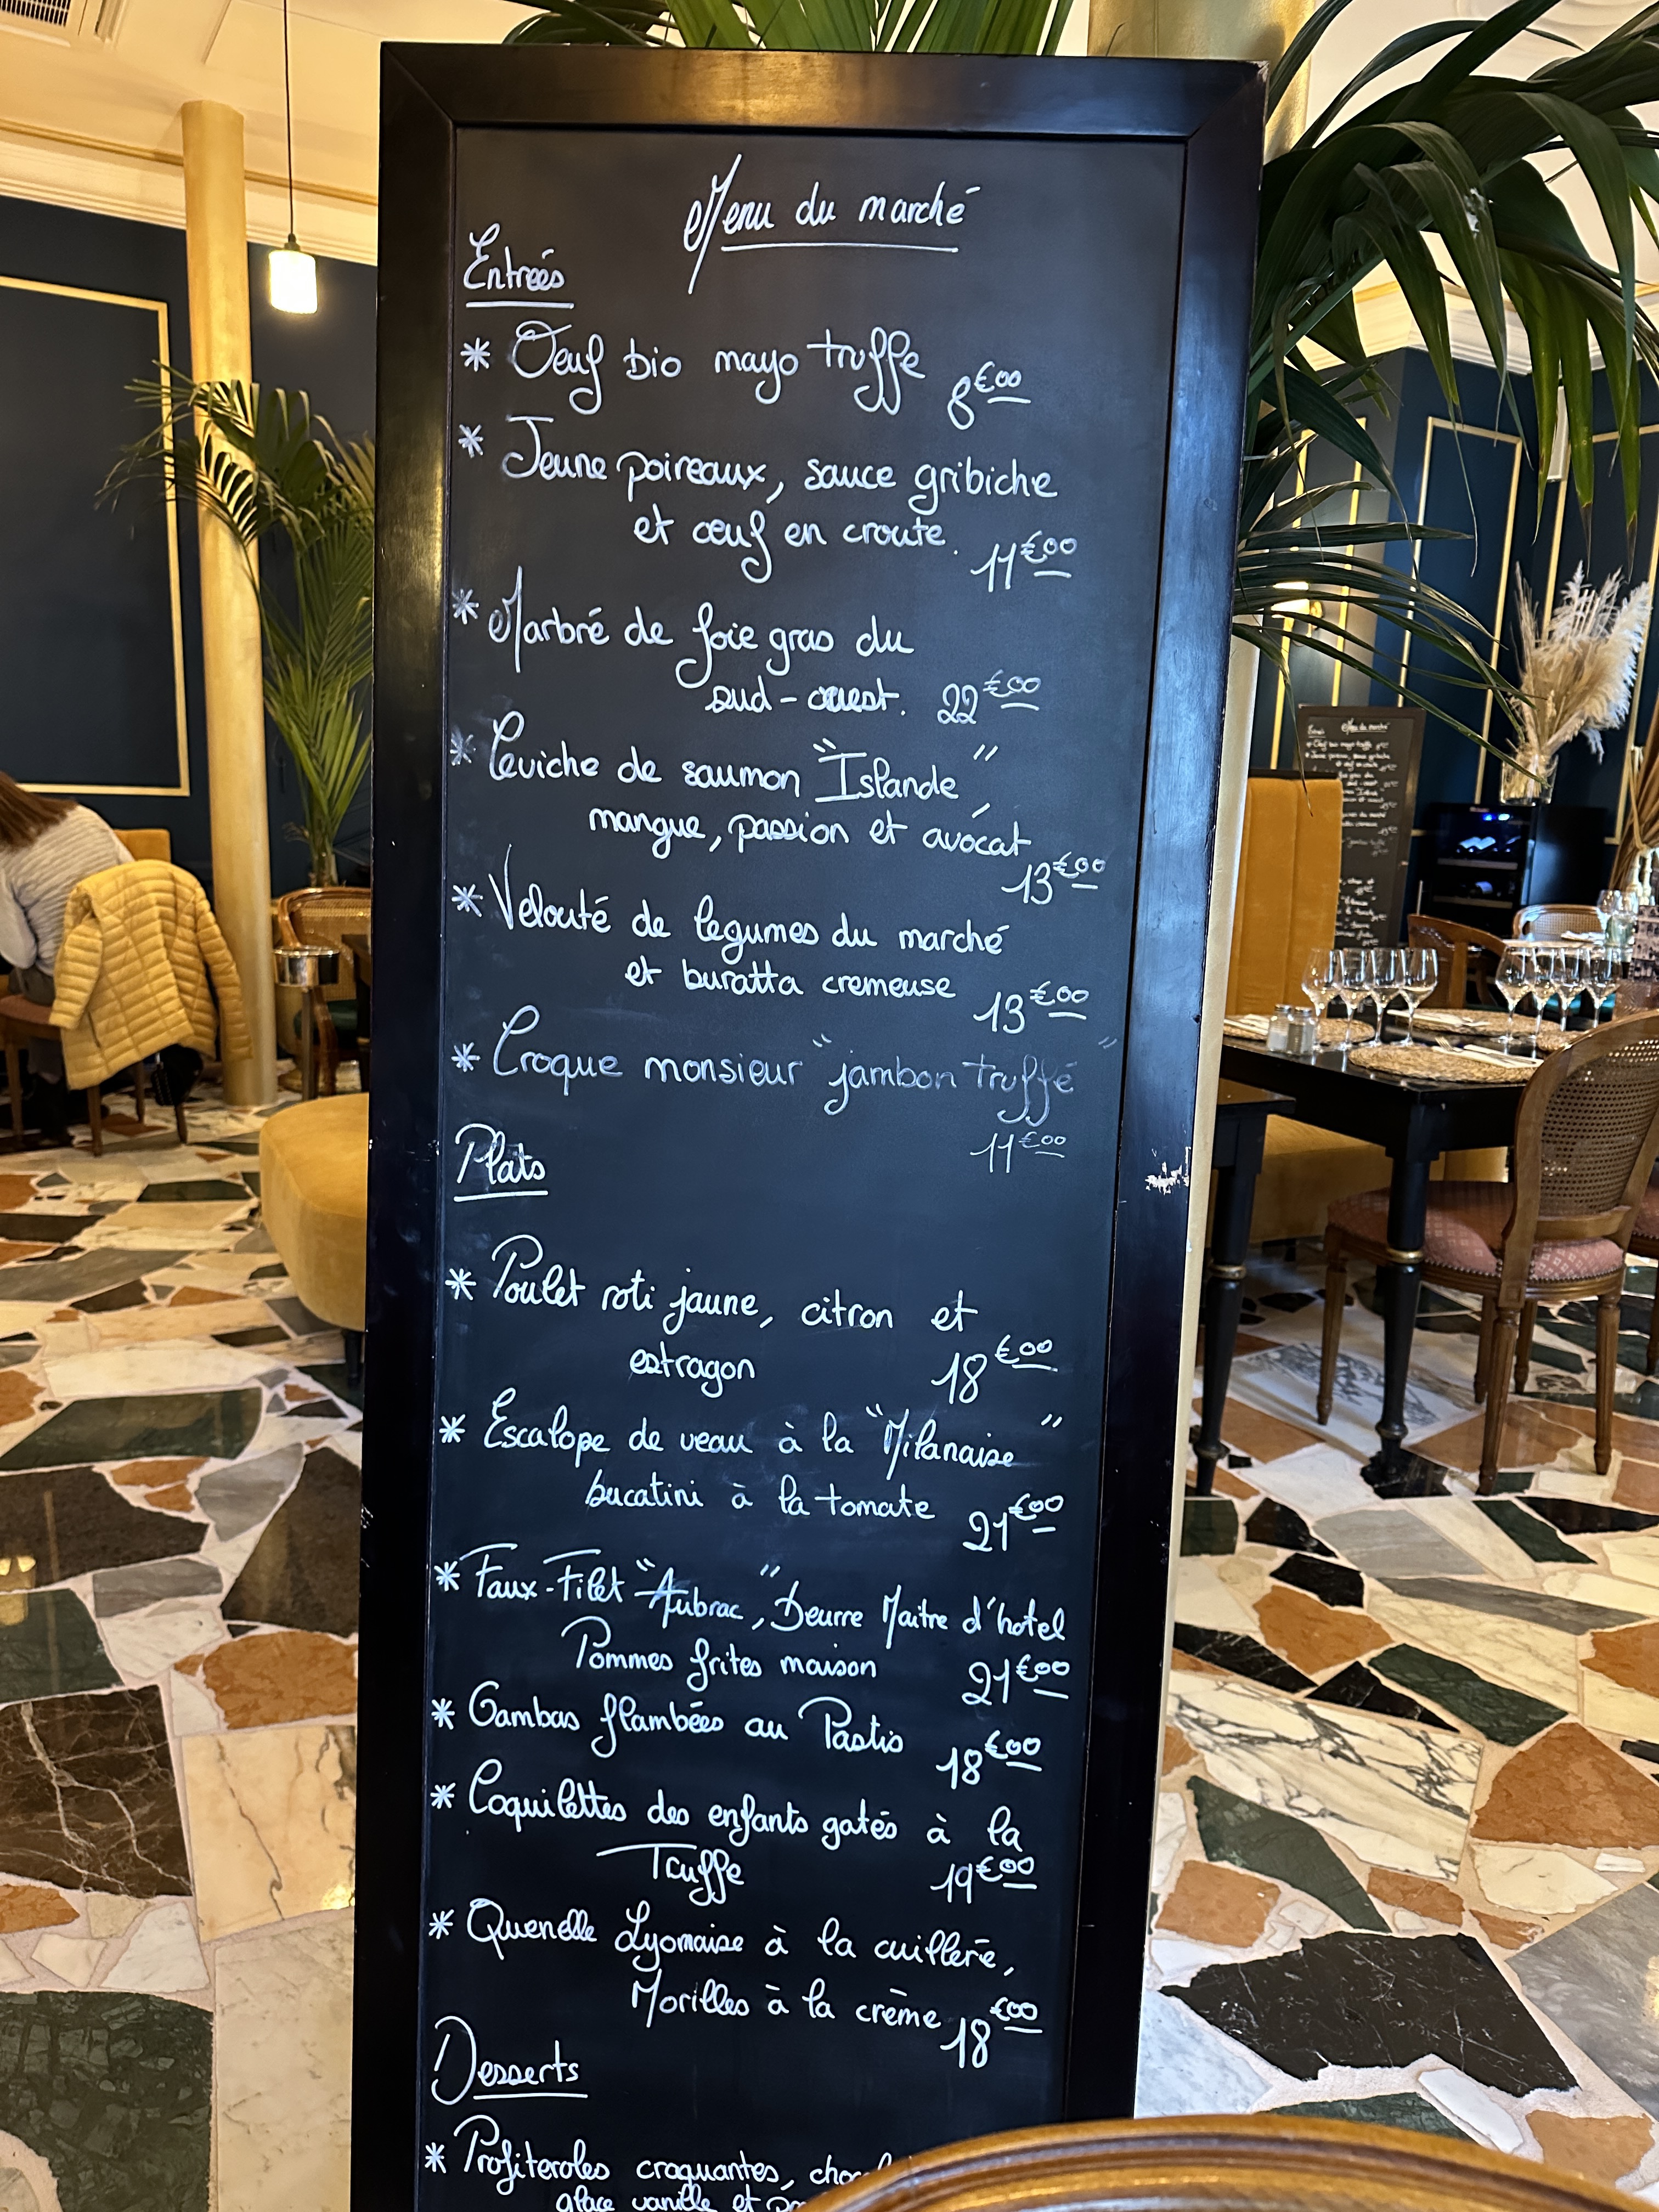 Menu du marché
Entreés
* Oeuf bio mayo truffe 8€00
* Jeune poireaux, sauce gribiche
et œuf en croute. 11€00
* Marbré de foie gras du
sud-ouest. 22€00
* Ceviche de saumon "Islande"
mangue, passion et avocat
13€00
* Velouté de legumes du marché
et buratta cremeuse 13€00
* Croque monsieur "jambon truffé"
11€00
Plats
* Poulet roti jaune, citron et
estragon 18€00
* Escalope de veau à la "Milanaise"
bucatini à la tomate 21€00
* Faux-Filet "Aubrac", Beurre Maitre d'hotel
Pommes frites maison 21€00
* Gambas flambées au Pastis 18€00
* Coquillettes des enfants gatés à la
Truffe 19€00
* Quenelle Lyonnaise à la cuillère,
Morilles à la crème 18€00
Desserts
* Profiteroles croquantes,
glace vanille et